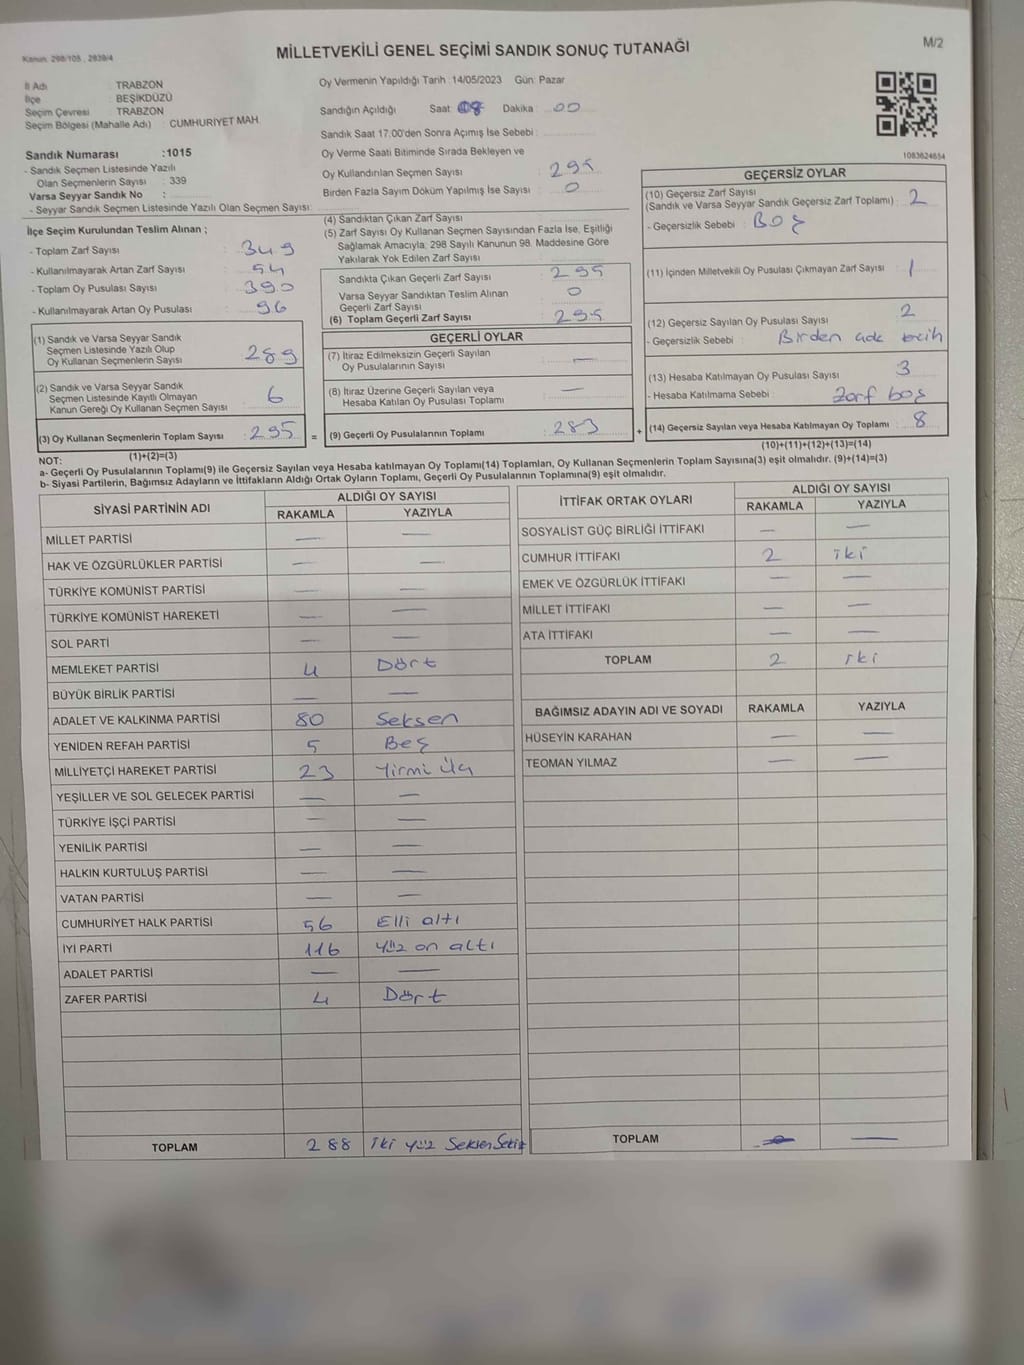 Kanun: 298/105 , 2839/4
MİLLETVEKİLİ GENEL SEÇİMİ SANDIK SONUÇ TUTANAĞI
M/2
İl Adı TRABZON
İlçe BEŞİKDÜZÜ
Seçim Çevresi TRABZON
Seçim Bölgesi (Mahalle Adı) : CUMHURIYET MAH.
Sandık Numarası :1015
- Sandık Seçmen Listesinde Yazılı
Olan Seçmenlerin Sayısı : 339
Varsa Seyyar Sandık No :
- Seyyar Sandık Seçmen Listesinde Yazılı Olan Seçmen Sayısı:
Oy Vermenin Yapıldığı Tarih :14/05/2023 Gün: Pazar
Sandığın Açıldığı Saat: 08 Dakika : 00
Sandık Saat 17:00'den Sonra Açımış İse Sebebi :
Oy Verme Saati Bitiminde Sırada Bekleyen ve
Oy Kullandırılan Seçmen Sayısı : 295
Birden Fazla Sayım Döküm Yapılmış İse Sayısı : 0
1083624654
İlçe Seçim Kurulundan Teslim Alınan ;
- Toplam Zarf Sayısı : 349
- Kullanılmayarak Artan Zarf Sayısı : 54
- Toplam Oy Pusulası Sayısı : 390
- Kullanılmayarak Artan Oy Pusulası : 96
(1) Sandık ve Varsa Seyyar Sandık
Seçmen Listesinde Yazılı Olup
Oy Kullanan Seçmenlerin Sayısı : 289
(2) Sandık ve Varsa Seyyar Sandık
Seçmen Listesinde Kayıtlı Olmayan
Kanun Gereği Oy Kullanan Seçmen Sayısı : 6
(3) Oy Kullanan Seçmenlerin Toplam Sayısı : 295 =
(1)+(2)=(3)
(4) Sandıktan Çıkan Zarf Sayısı :
(5) Zarf Sayısı Oy Kullanan Seçmen Sayısından Fazla İse, Eşitliği
Sağlamak Amacıyla, 298 Sayılı Kanunun 98. Maddesine Göre
Yakılarak Yok Edilen Zarf Sayısı :
Sandıkta Çıkan Geçerli Zarf Sayısı : 295
Varsa Seyyar Sandıktan Teslim Alınan
Geçerli Zarf Sayısı : 0
(6) Toplam Geçerli Zarf Sayısı : 295
GEÇERLİ OYLAR
(7) İtiraz Edilmeksizin Geçerli Sayılan
Oy Pusulalarının Sayısı : —
(8) İtiraz Üzerine Geçerli Sayılan veya
Hesaba Katılan Oy Pusulası Toplamı : —
(9) Geçerli Oy Pusulalarının Toplamı : 283 +
GEÇERSİZ OYLAR
(10) Geçersiz Zarf Sayısı
(Sandık ve Varsa Seyyar Sandık Geçersiz Zarf Toplamı) : 2
- Geçersizlik Sebebi : Boş
(11) İçinden Milletvekili Oy Pusulası Çıkmayan Zarf Sayısı : 1
(12) Geçersiz Sayılan Oy Pusulası Sayısı : 2
- Geçersizlik Sebebi : Birden
(13) Hesaba Katılmayan Oy Pusulası Sayısı : 3
- Hesaba Katılmama Sebebi : Zarf boş
(14) Geçersiz Sayılan veya Hesaba Katılmayan Oy Toplamı : 8
(10)+(11)+(12)+(13)=(14)
NOT:
a- Geçerli Oy Pusulalarının Toplamı(9) ile Geçersiz Sayılan veya Hesaba katılmayan Oy Toplamı(14) Toplamları, Oy Kullanan Seçmenlerin Toplam Sayısına(3) eşit olmalıdır. (9)+(14)=(3)
b- Siyasi Partilerin, Bağımsız Adayların ve İttifakların Aldığı Ortak Oyların Toplamı, Geçerli Oy Pusulalarının Toplamına(9) eşit olmalıdır.
SİYASİ PARTİNİN ADI ALDIĞI OY SAYISI
RAKAMLA YAZIYLA
MİLLET PARTİSİ — —
HAK VE ÖZGÜRLÜKLER PARTİSİ — —
TÜRKİYE KOMÜNİST PARTİSİ — —
TÜRKİYE KOMÜNİST HAREKETİ — —
SOL PARTİ — —
MEMLEKET PARTİSİ 4 Dört
BÜYÜK BİRLİK PARTİSİ — —
ADALET VE KALKINMA PARTİSİ 80 Seksen
YENİDEN REFAH PARTİSİ 5 Beş
MİLLİYETÇİ HAREKET PARTİSİ 23 Yirmi Üç
YEŞİLLER VE SOL GELECEK PARTİSİ — —
TÜRKİYE İŞÇİ PARTİSİ — —
YENİLİK PARTİSİ — —
HALKIN KURTULUŞ PARTİSİ — —
VATAN PARTİSİ — —
CUMHURİYET HALK PARTİSİ 56 Elli altı
İYİ PARTİ 116 yüz on altı
ADALET PARTİSİ — —
ZAFER PARTİSİ 4 Dört
TOPLAM 288 iki yüz Seksen Sekiz
İTTİFAK ORTAK OYLARI ALDIĞI OY SAYISI
RAKAMLA YAZIYLA
SOSYALİST GÜÇ BİRLİĞİ İTTİFAKI — —
CUMHUR İTTİFAKI 2 iki
EMEK VE ÖZGÜRLÜK İTTİFAKI — —
MİLLET İTTİFAKI — —
ATA İTTİFAKI — —
TOPLAM 2 iki
BAĞIMSIZ ADAYIN ADI VE SOYADI RAKAMLA YAZIYLA
HÜSEYİN KARAHAN — —
TEOMAN YILMAZ — —
TOPLAM — —